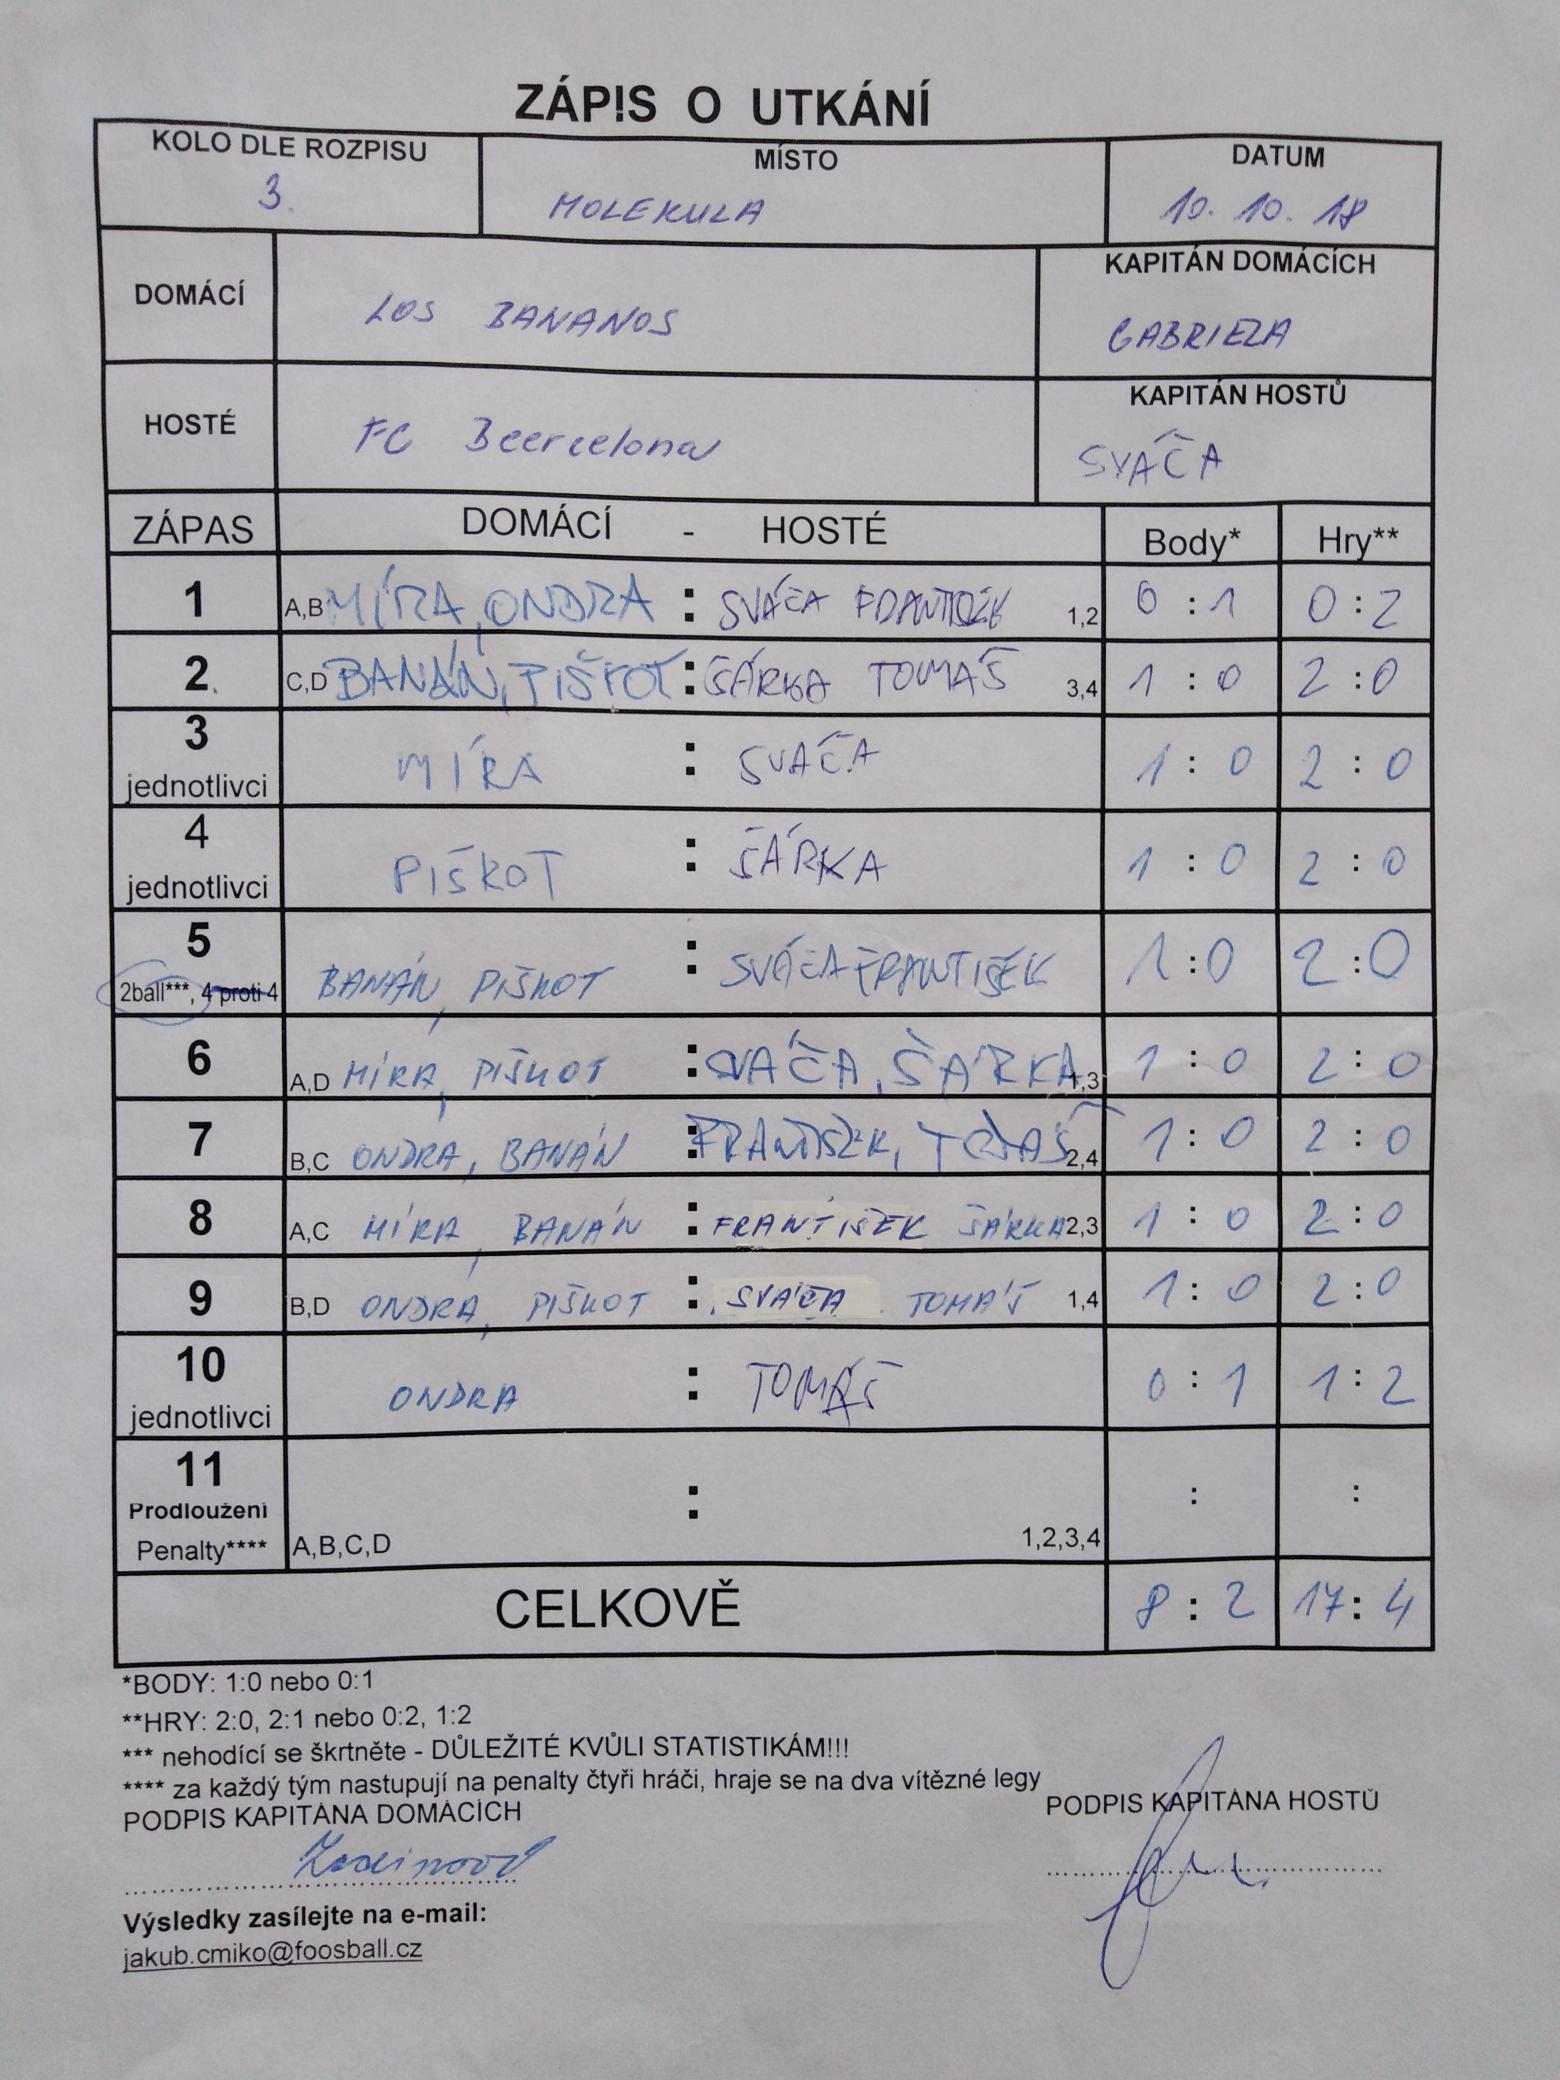 ZÁPIS O UTKÁNÍ
KOLO DLE ROZPISU MÍSTO DATUM
3. MOLEKULA 10. 10. 18
DOMÁCÍ LOS BANANOS KAPITÁN DOMÁCÍCH
GABRIELA
HOSTÉ FC Beercelona KAPITÁN HOSTŮ
SVÁČA
ZÁPAS DOMÁCÍ - HOSTÉ Body* Hry**
1 A,B MÍRA, ONDRA : SVÁČA FRANTIŠEK 1,2 0 : 1 0 : 2
2. C,D BANÁN, PIŠKOT : ŠÁRKA TOMÁŠ 3,4 1 : 0 2 : 0
3
jednotlivci MÍRA : SVÁČA 1 : 0 2 : 0
4
jednotlivci PIŠKOT : ŠÁRKA 1 : 0 2 : 0
5
2ball***, 4 proti 4 BANÁN, PIŠKOT : SVÁČA FRANTIŠEK 1 : 0 2 : 0
6 A,D MÍRA, PIŠKOT : SVÁČA, ŠÁRKA 1,3 1 : 0 2 : 0
7 B,C ONDRA, BANÁN : FRANTIŠEK, TOMÁŠ 2,4 1 : 0 2 : 0
8 A,C MÍRA, BANÁN : FRANTIŠEK ŠÁRKA 2,3 1 : 0 2 : 0
9 B,D ONDRA, PIŠKOT : SVÁČA TOMÁŠ 1,4 1 : 0 2 : 0
10
jednotlivci ONDRA : TOMÁŠ 0 : 1 1 : 2
11
Prodloužení
Penalty**** A,B,C,D : 1,2,3,4 : :
CELKOVĚ 8 : 2 17 : 4
*BODY: 1:0 nebo 0:1
**HRY: 2:0, 2:1 nebo 0:2, 1:2
*** nehodící se škrtněte - DŮLEŽITÉ KVŮLI STATISTIKÁM!!!
**** za každý tým nastupují na penalty čtyři hráči, hraje se na dva vítězné legy
PODPIS KAPITÁNA DOMÁCÍCH PODPIS KAPITÁNA HOSTŮ
Výsledky zasílejte na e-mail:
jakub.cmiko@foosball.cz